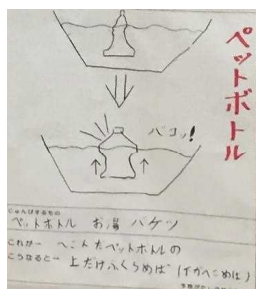 ペットボトル
パコッ!
じゅんびするもの
ペットボトル お湯 バケツ
これが…
へこんだペットボトルの
こうなると…
上だけふくらめば (下がへこめば)